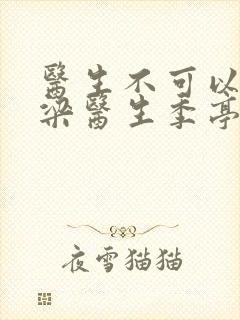 醫生不可以
梁醫生季亭
夜雪猫猫